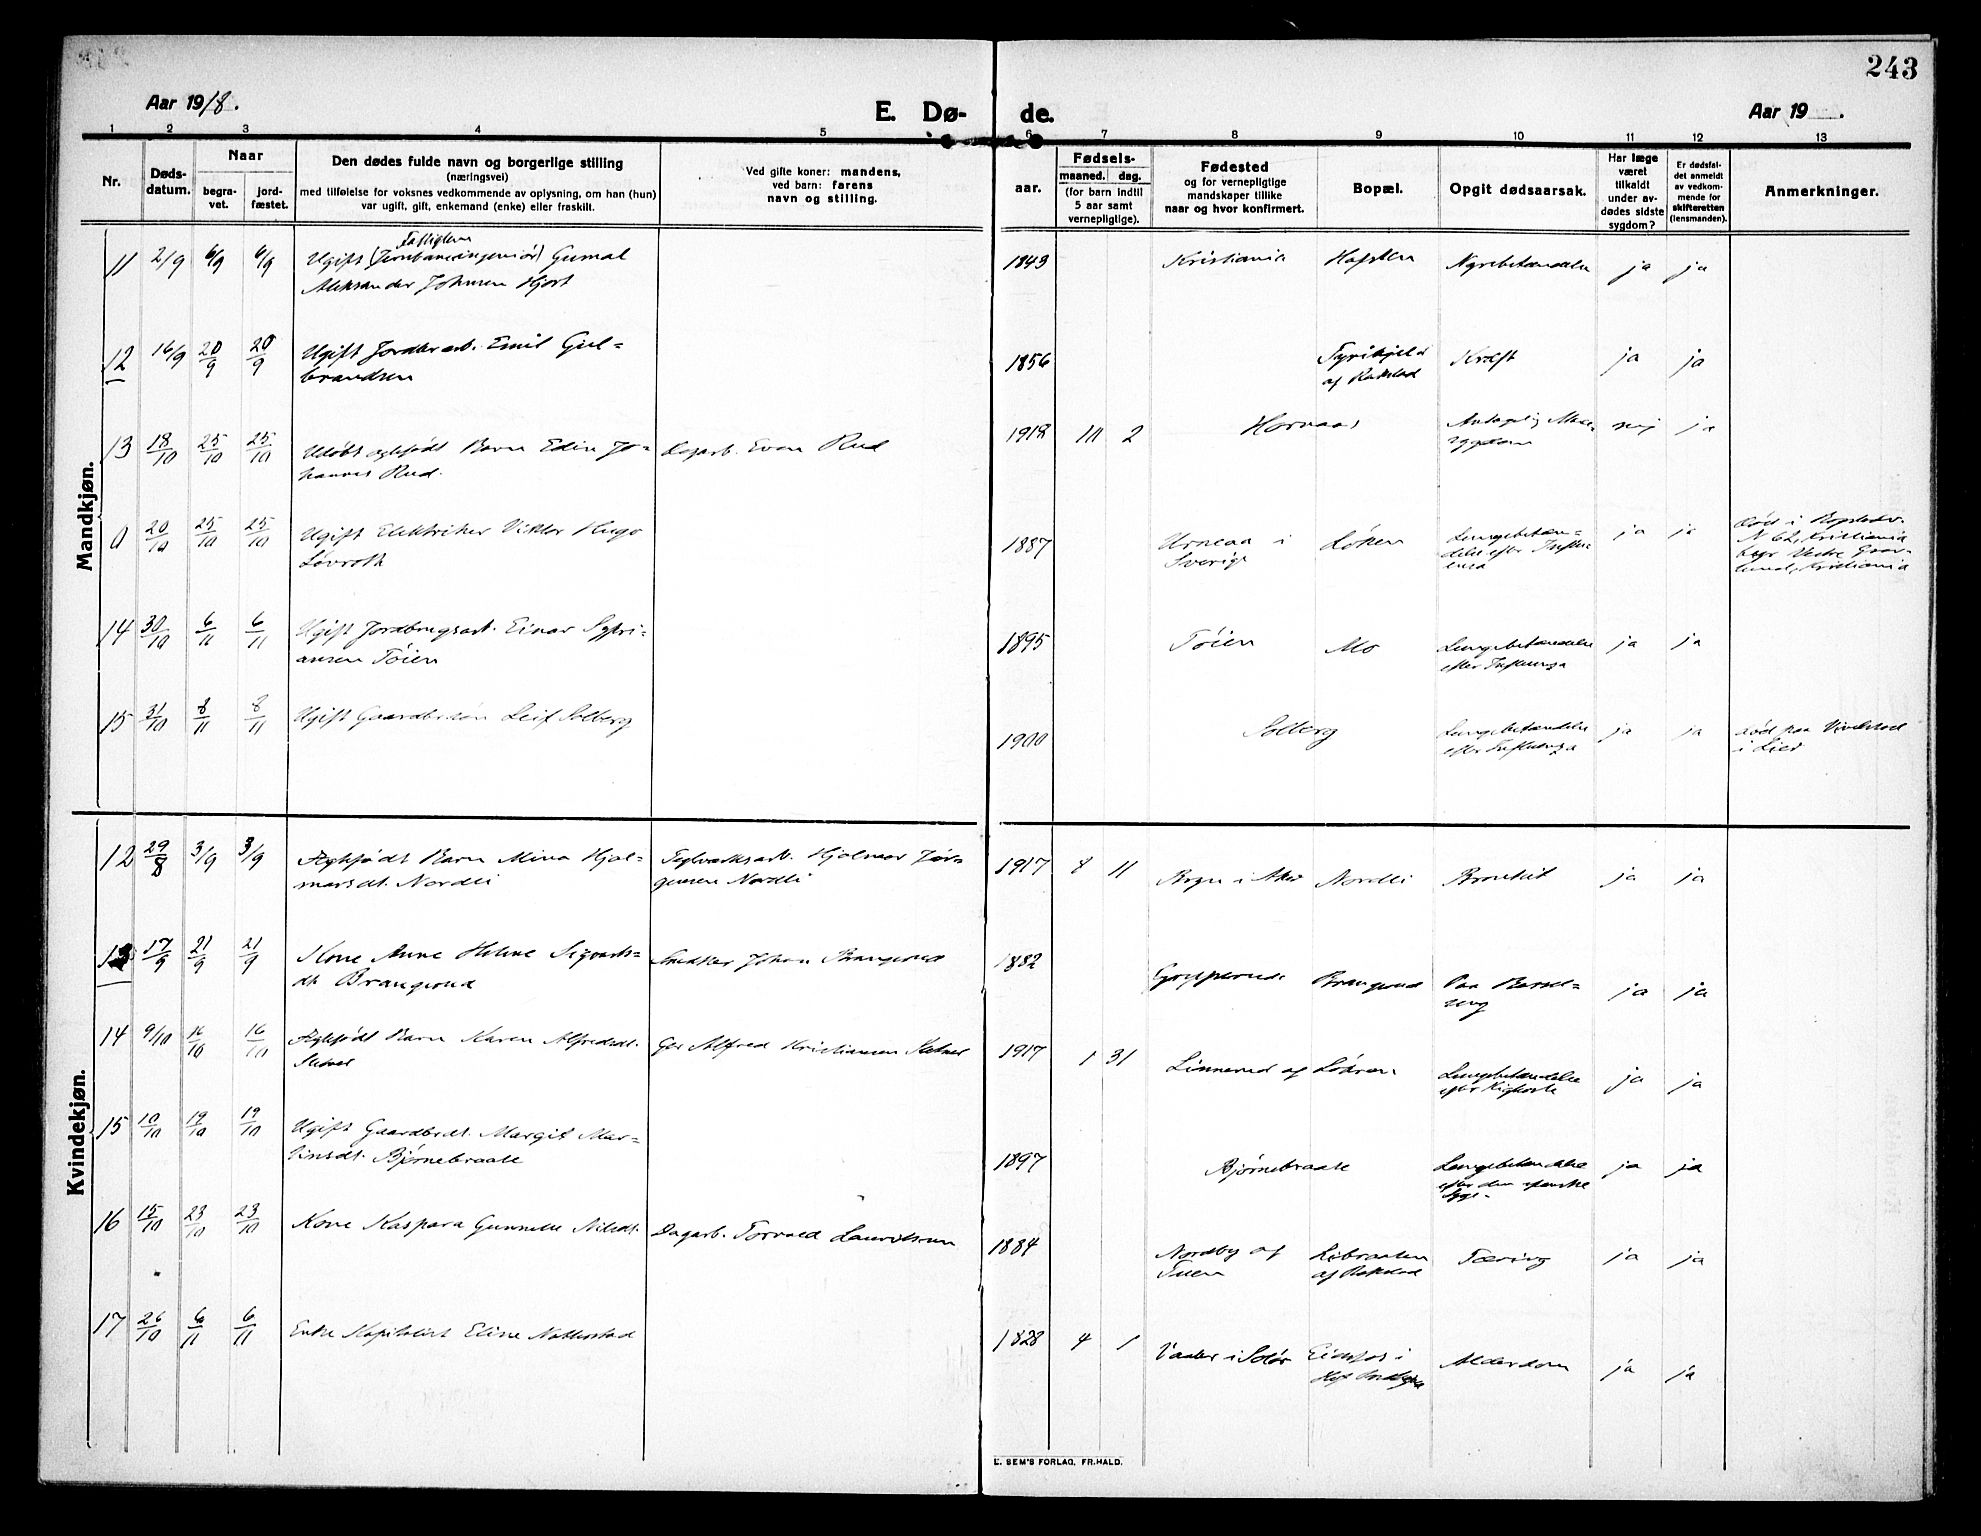 243
Aar 1918.
E. Dø- de.
Aar 19 .
1 2 3 4 5 6 7 8 9 10 11 12 13
Nr.
Døds-
datum.
Naar
begra-
vet.
jord-
fæstet.
Den dødes fulde navn og borgerlige stilling
(næringsvei)
med tilføielse for voksnes vedkommende av oplysning, om han (hun)
var ugift, gift, enkemand (enke) eller fraskilt.
Ved gifte koner: mandens,
ved barn: farens
navn og stilling.
Fødsels-
aar.
maaned. dag.
(for barn indtil
5 aar samt
vernepligtige).
Fødested
og for vernepligtige
mandskaper tillike
naar og hvor konfirmert.
Bopæl.
Opgit dødsaarsak.
Har læge
været
tilkaldt
under av-
dødes sidste
sygdom?
Er dødsfal-
det anmeldt
av vedkom-
mende for
skifteretten
(lensmanden).
Anmerkninger.
Mandkjøn.
11 2/9 6/9 6/9 Ugift (Jernbaneingeniør) Gumal
Aleksander Johnsen Hjort
1849 Kristiania Hafslen Nyrebetændelse ja ja
12 16/9 20/9 20/9 Ugift Jordbr.arb. Emil Gul-
brandsen
1856 Kræft ja ja
af Rakstad
13 18/10 25/10 25/10 Udøbt egtefødt Barn Edin Jo-
hannes Rud.
Dagarb. Even Rud
1918 10 2 Hornaas Antagelig Mave-
sygdom nei ja
0 20/10 25/10 25/10 Ugift Elektriker Viktor Hugo
Lövroth
1887 i
Sverige
Løken Lungebetæn-
delse efter Influ-
ensa
ja ja
død i
N 62, Kristiania
begr Vestre Grav-
lund, Kristiania
14 30/10 6/11 6/11 Ugift Jordbrugsarb. Einar Sypri-
ansen Töien
1895 Töien Mo Lungebetændelse
efter Influenza
ja ja
15 31/10 8/11 8/11 Ugift Gaardbr.søn Leif Solberg
1900 Solberg Lungebetændelse
efter Influenza
ja ja
død paa
i Lier
Kvindekjøn.
12 29/8 3/9 3/9 Egtefødt Barn Mina Hjal-
marsdt. Nordli
Teglverksarb. Hjalmar Jør-
gensen Nordli
1917 8 11 Bogn i Aker Nordli Bronkit ja ja
13 17/9 21/9 21/9 Kone Anne Helene Sigvarts-
dt. Brangerud
Snedker Johan Brangerud
1882 Gropperud Brangerud Paa Barsel-
seng
ja ja
14 9/10 16/10 16/10 Egtefødt Barn Karen Alfredsdt.
Gbr Alfred Kristiansen
1917 1 31 Linnerud af Löken Lungebetændelse
efter Kighoste
ja ja
15 10/10 19/10 19/10 Ugift Gaardbr.dt. Margit Mar-
tinsdt. Bjørnebraate
1897 Bjørnebraate Lungebetændelse
efter den spanske
Syge
ja ja
16 15/10 23/10 23/10 Kone Kaspara Gunnelle Nilsdt.
Dagarb. Torvald Lauritsen
1884 Nordby af
Tuen
Libraaten
af Rakstad
Tæring ja ja
17 26/10 6/11 6/11 Enke Kapitalist Eline Nakkestad
1828 4 1 Vaaler i Solør Eidsfos i
Hof
Alderdom ja ja
E. SEM'S FORLAG, FR.HALD.